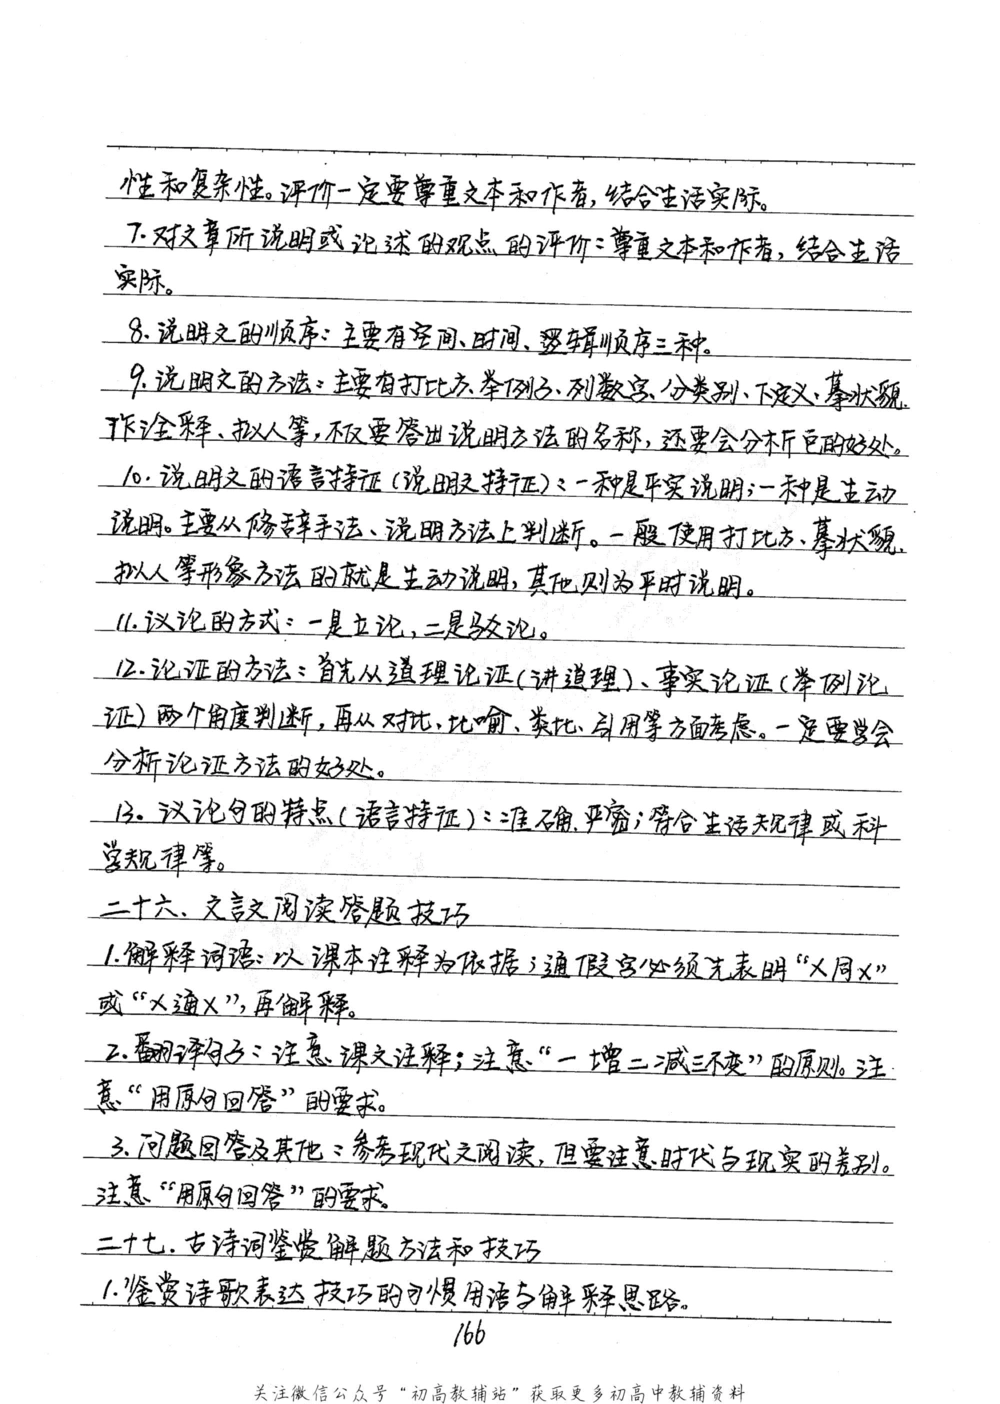 性和复杂性。评价一定要尊重文本和作者，结合生活实际。
7.对文章所说明或论述的观点的评价：尊重文本和作者，结合生活
实际。
8.说明文的顺序：主要有空间、时间、逻辑顺序三种。
9.说明文的方法：主要有打比方、举例子、列数字、分类别、下定义、摹状貌、
作诠释、拟人等，不仅要答出说明方法的名称，还要会分析它的好处。
10.说明文的语言特征（说明文特征）：一种是平实说明；一种是生动
说明。主要从修辞手法、说明方法上判断。一般使用打比方、摹状貌、
拟人等形象方法的就是生动说明，其他则为平时说明。
11.议论的方式：一是立论，二是驳论。
12.论证的方法：首先从道理论证（讲道理）、事实论证（举例论
证）两个角度判断，再从对比、比喻、类比、引用等方面考虑。一定要学会
分析论证方法的好处。
13.议论句的特点（语言特征）：准确、严密；符合生活规律或科
学规律等。
二十六、文言文阅读答题技巧
1.解释词语：以课本注释为依据；通假字必须先表明“X同X”
或“X通X”，再解释。
2.翻译句子：注意课文注释；注意“一增二减三不变”的原则。注
意“用原句回答”的要求。
3.问题回答及其他：参考现代文阅读，但要注意时代与现实的差别。
注意“用原句回答”的要求。
二十七、古诗词鉴赏解题方法和技巧
1.鉴赏诗歌表达技巧的习惯用语与解释思路。
166
关注微信公众号“初高教辅站”获取更多初高中教辅资料